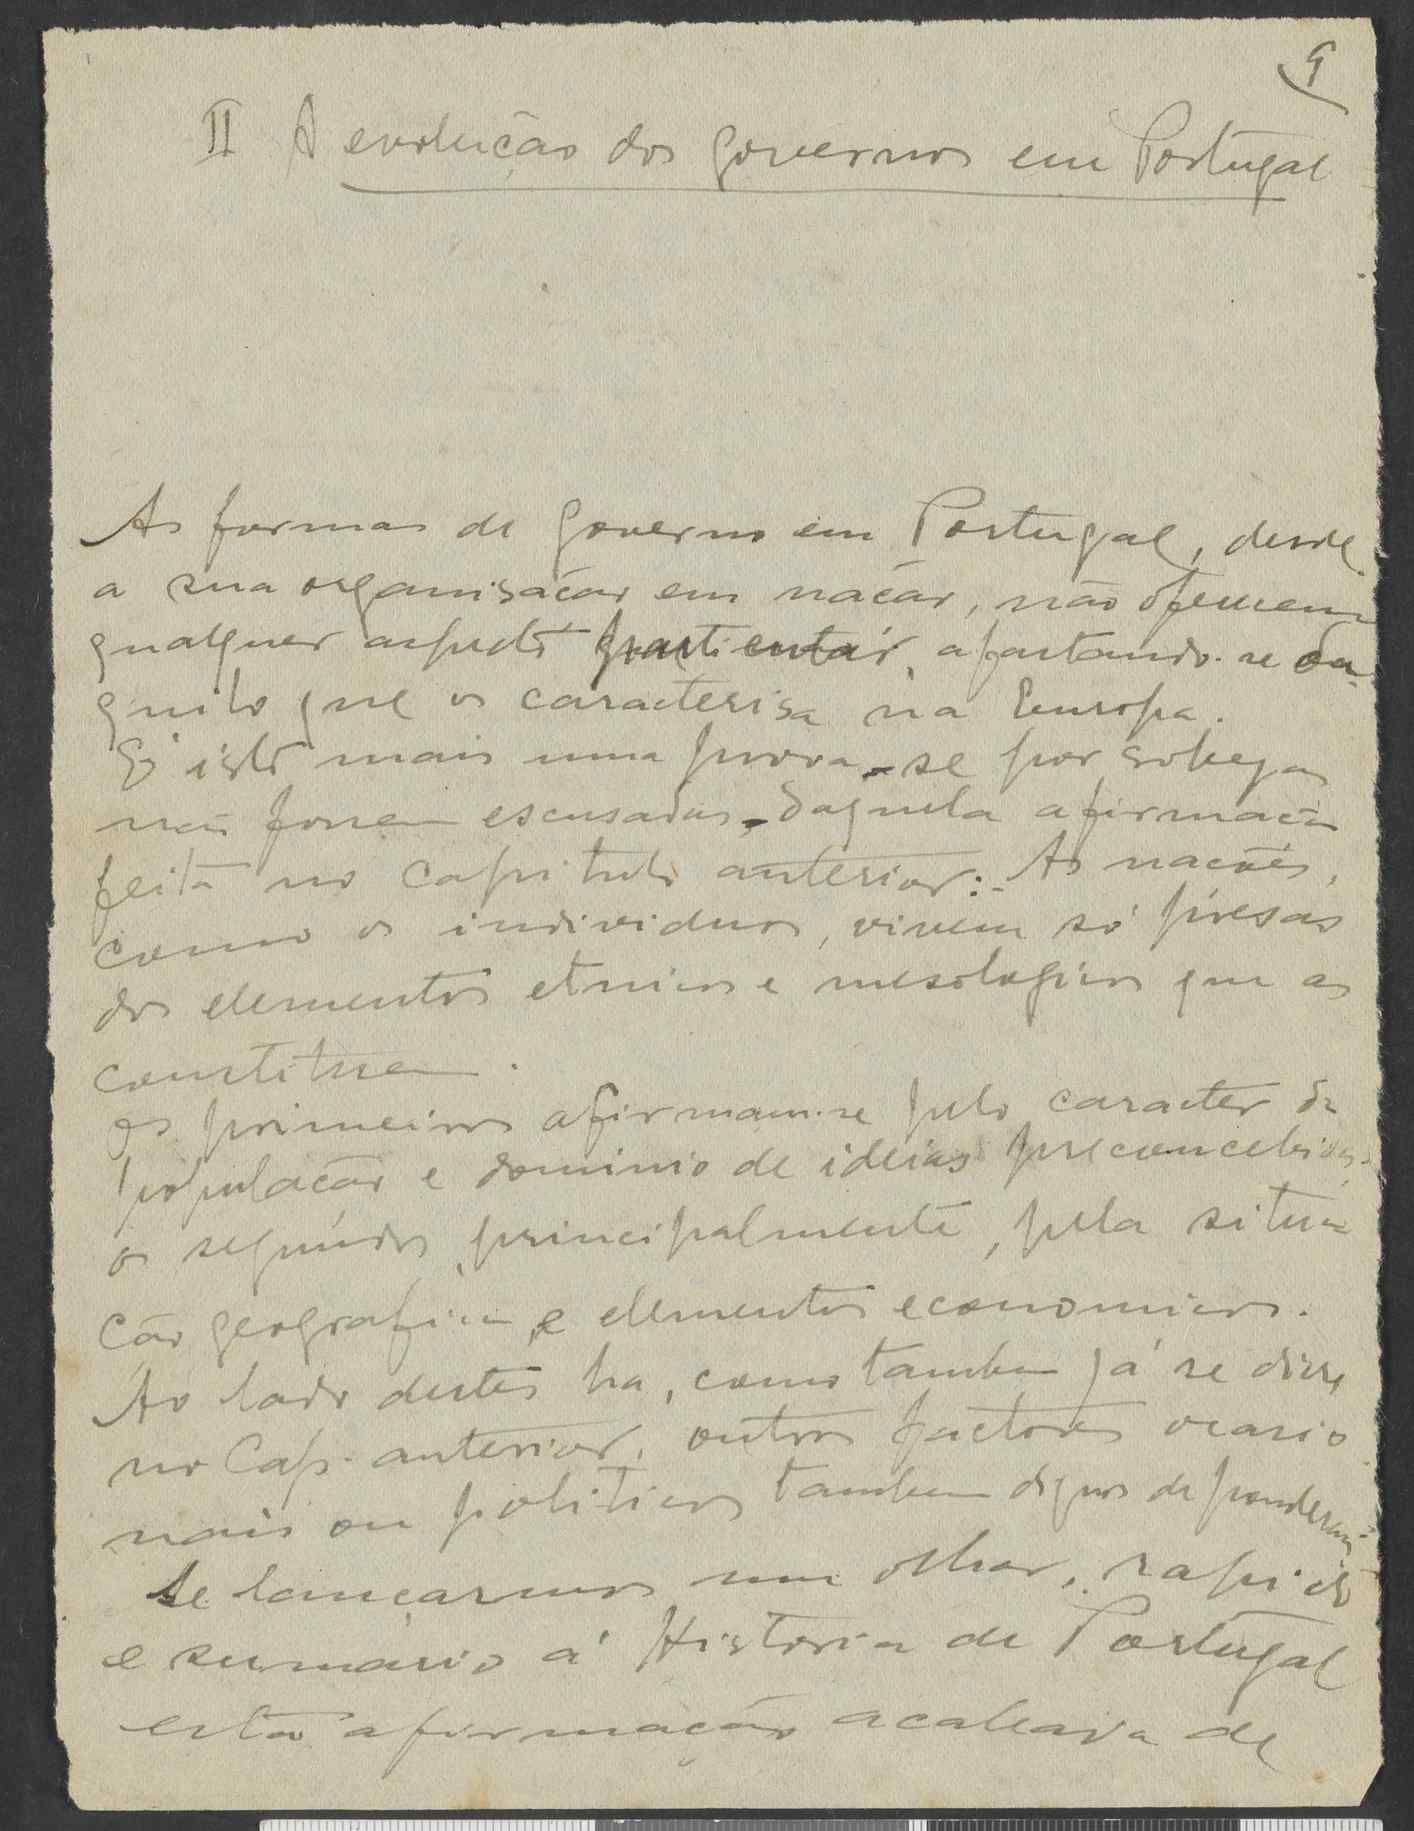 9
II A evolução dos governos em Portugal
As formas de governo em Portugal, desde
a sua organisação em nação, não oferecem
qualquer aspecto particular, afastando-se da-
quilo que os caracterisa na Europa.
É isto mais uma prova - se por sobejas
não fossem escusadas - daquela afirmação
feita no capitulo anterior: - As nações,
como os individuos, vivem só presas
dos elementos etnicos e mesologicos que as
constituem.
Os primeiros afirmam-se pelo caracter da
população e dominio de ideias preconcebidas,
os segundos, principalmente, pela situa
ção geografica, e elementos economicos.
Ao lado destes ha, como tambem já se disse
no Cap. anterior, outros factores ocasio
nais ou politicos tambem dignos de ponderação
Se lançarmos um olhar, rapido
e sumário á Historia de Portugal
esta afirmação acaba de